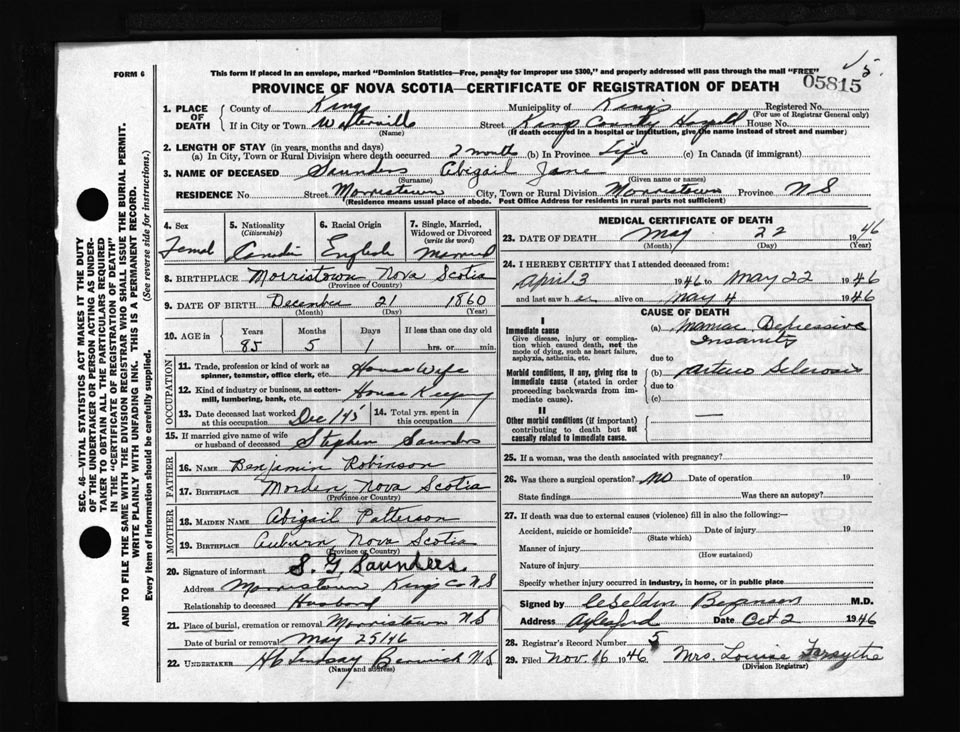 FORM 6
This form if placed in an envelope, marked "Dominion Statistics—Free, penalty for improper use $300," and properly addressed will pass through the mail "FREE"
05815
PROVINCE OF NOVA SCOTIA—CERTIFICATE OF REGISTRATION OF DEATH
1. PLACE OF DEATH County of King Municipality of Kings Registered No.
(For use of Registrar General only)
If in City or Town Waterville Street Kings County Hospital House No.
(Name) (If death occurred in a hospital or institution, give the name instead of street and number)
2. LENGTH OF STAY (in years, months and days)
(a) In City, Town or Rural Division where death occurred 2 month (b) In Province Life (c) In Canada (if immigrant)
3. NAME OF DECEASED Saunders Abigail Jane
(Surname) (Given name or names)
RESIDENCE No Street Morristown City, Town or Rural Division Morristown Province N.S
(Residence means usual place of abode. Post Office Address for residents in rural parts not sufficient)
4. Sex 5. Nationality (Citizenship) 6. Racial Origin 7. Single, Married, Widowed or Divorced (write the word)
Femal Canadin English Married
8. BIRTHPLACE Morristown Nova Scotia
(Province of Country)
9. DATE OF BIRTH December 21 1860
(Month) (Day) (Year)
10. AGE in Years Months Days If less than one day old
85 5 1 hrs. or min.
OCCUPATION
11. Trade, profession or kind of work as spinner, teamster, office clerk, etc. House Wife
12. Kind of industry or business, as cotton-mill, lumbering, bank, etc. House Keeping
13. Date deceased last worked at this occupation Dec 1 45 14. Total yrs. spent in this occupation
15. If married give name of wife or husband of deceased Stephen Saunders
FATHER
16. NAME Benjamin Robinson
17. BIRTHPLACE Morden, Nova Scotia
(Province or Country)
MOTHER
18. MAIDEN NAME Abigail Patterson
19. BIRTHPLACE Auburn Nova Scotia
(Province or Country)
20. Signature of informant S. G. Saunders
Address Morristown Kings Co N.S
Relationship to deceased Husband
21. Place of burial, cremation or removal Morristown N S
Date of burial or removal May 25 / 46
22. UNDERTAKER Lindsay Berwick N S
(Name and address)
MEDICAL CERTIFICATE OF DEATH
23. DATE OF DEATH May 22 1946
(Month) (Day) (Year)
24. I HEREBY CERTIFY that I attended deceased from:
April 3 1946 to May 22 1946
and last saw h er alive on May 4 1946
CAUSE OF DEATH
I
Immediate cause
Give disease, injury or complication which caused death, not the mode of dying, such as heart failure, asphyxia, asthenia, etc.
(a) Maniac Depressive Insanity
due to
Morbid conditions, if any, giving rise to immediate cause (stated in order proceeding backwards from immediate cause).
(b) Arterio Sclerosis
due to
(c)
II
Other morbid conditions (if important) contributing to death but not causally related to immediate cause.
25. If a woman, was the death associated with pregnancy?
26. Was there a surgical operation? No Date of operation 19
State findings Was there an autopsy?
27. If death was due to external causes (violence) fill in also the following:—
Accident, suicide or homicide? Date of injury 19
(State which)
Manner of injury
(How sustained)
Nature of injury
Specify whether injury occurred in industry, in home, or in public place
Signed by M.D.
Address Aylesford Date Oct 2 1946
28. Registrar's Record Number 5
29. Filed Nov. 16 1946 Mrs. Louise Forsythe
(Division Registrar)
SEC. 46—VITAL STATISTICS ACT MAKES IT THE DUTY
OF THE UNDERTAKER OR PERSON ACTING AS UNDER-
TAKER TO OBTAIN ALL THE PARTICULARS REQUIRED
IN THE "CERTIFICATE OF REGISTRATION OF DEATH"
AND TO FILE THE SAME WITH THE DIVISION REGISTRAR WHO SHALL ISSUE THE BURIAL PERMIT.
WRITE PLAINLY WITH UNFADING INK. THIS IS A PERMANENT RECORD.
Every item of information should be carefully supplied. (See reverse side for instructions.)